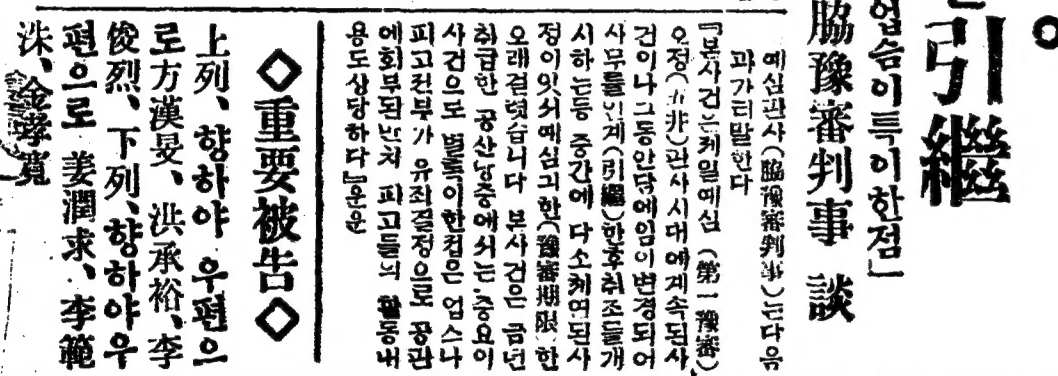 引繼
업슴이특이한점」
脇豫審判事 談
예심판사(脇豫審判事)는다음
과가티말한다
『본사건은제일예심(第一豫審)
오정(五井)판사시대에계속된사
건이나그동안닭에임이변경되어
사무를인계(引繼)한후취조를개
시하는등 중간에 다소체연된사
정이잇서예심긔한(豫審期限)한
오래걸렷슴니다 본사건은 금년
취급한 공산당중에서는 중요이
사건으로 별축이한점은 업스나
피고전부가 유죄결정으로 공판
에회부된만치 피고들의 활동내
용도상당하다』운운
◇重要被告◇
上列、향하야 우편으
로方漢旻、洪承裕、李
俊烈、下列、향하야우
편으로 姜潤求、李範
洙、金孝寬